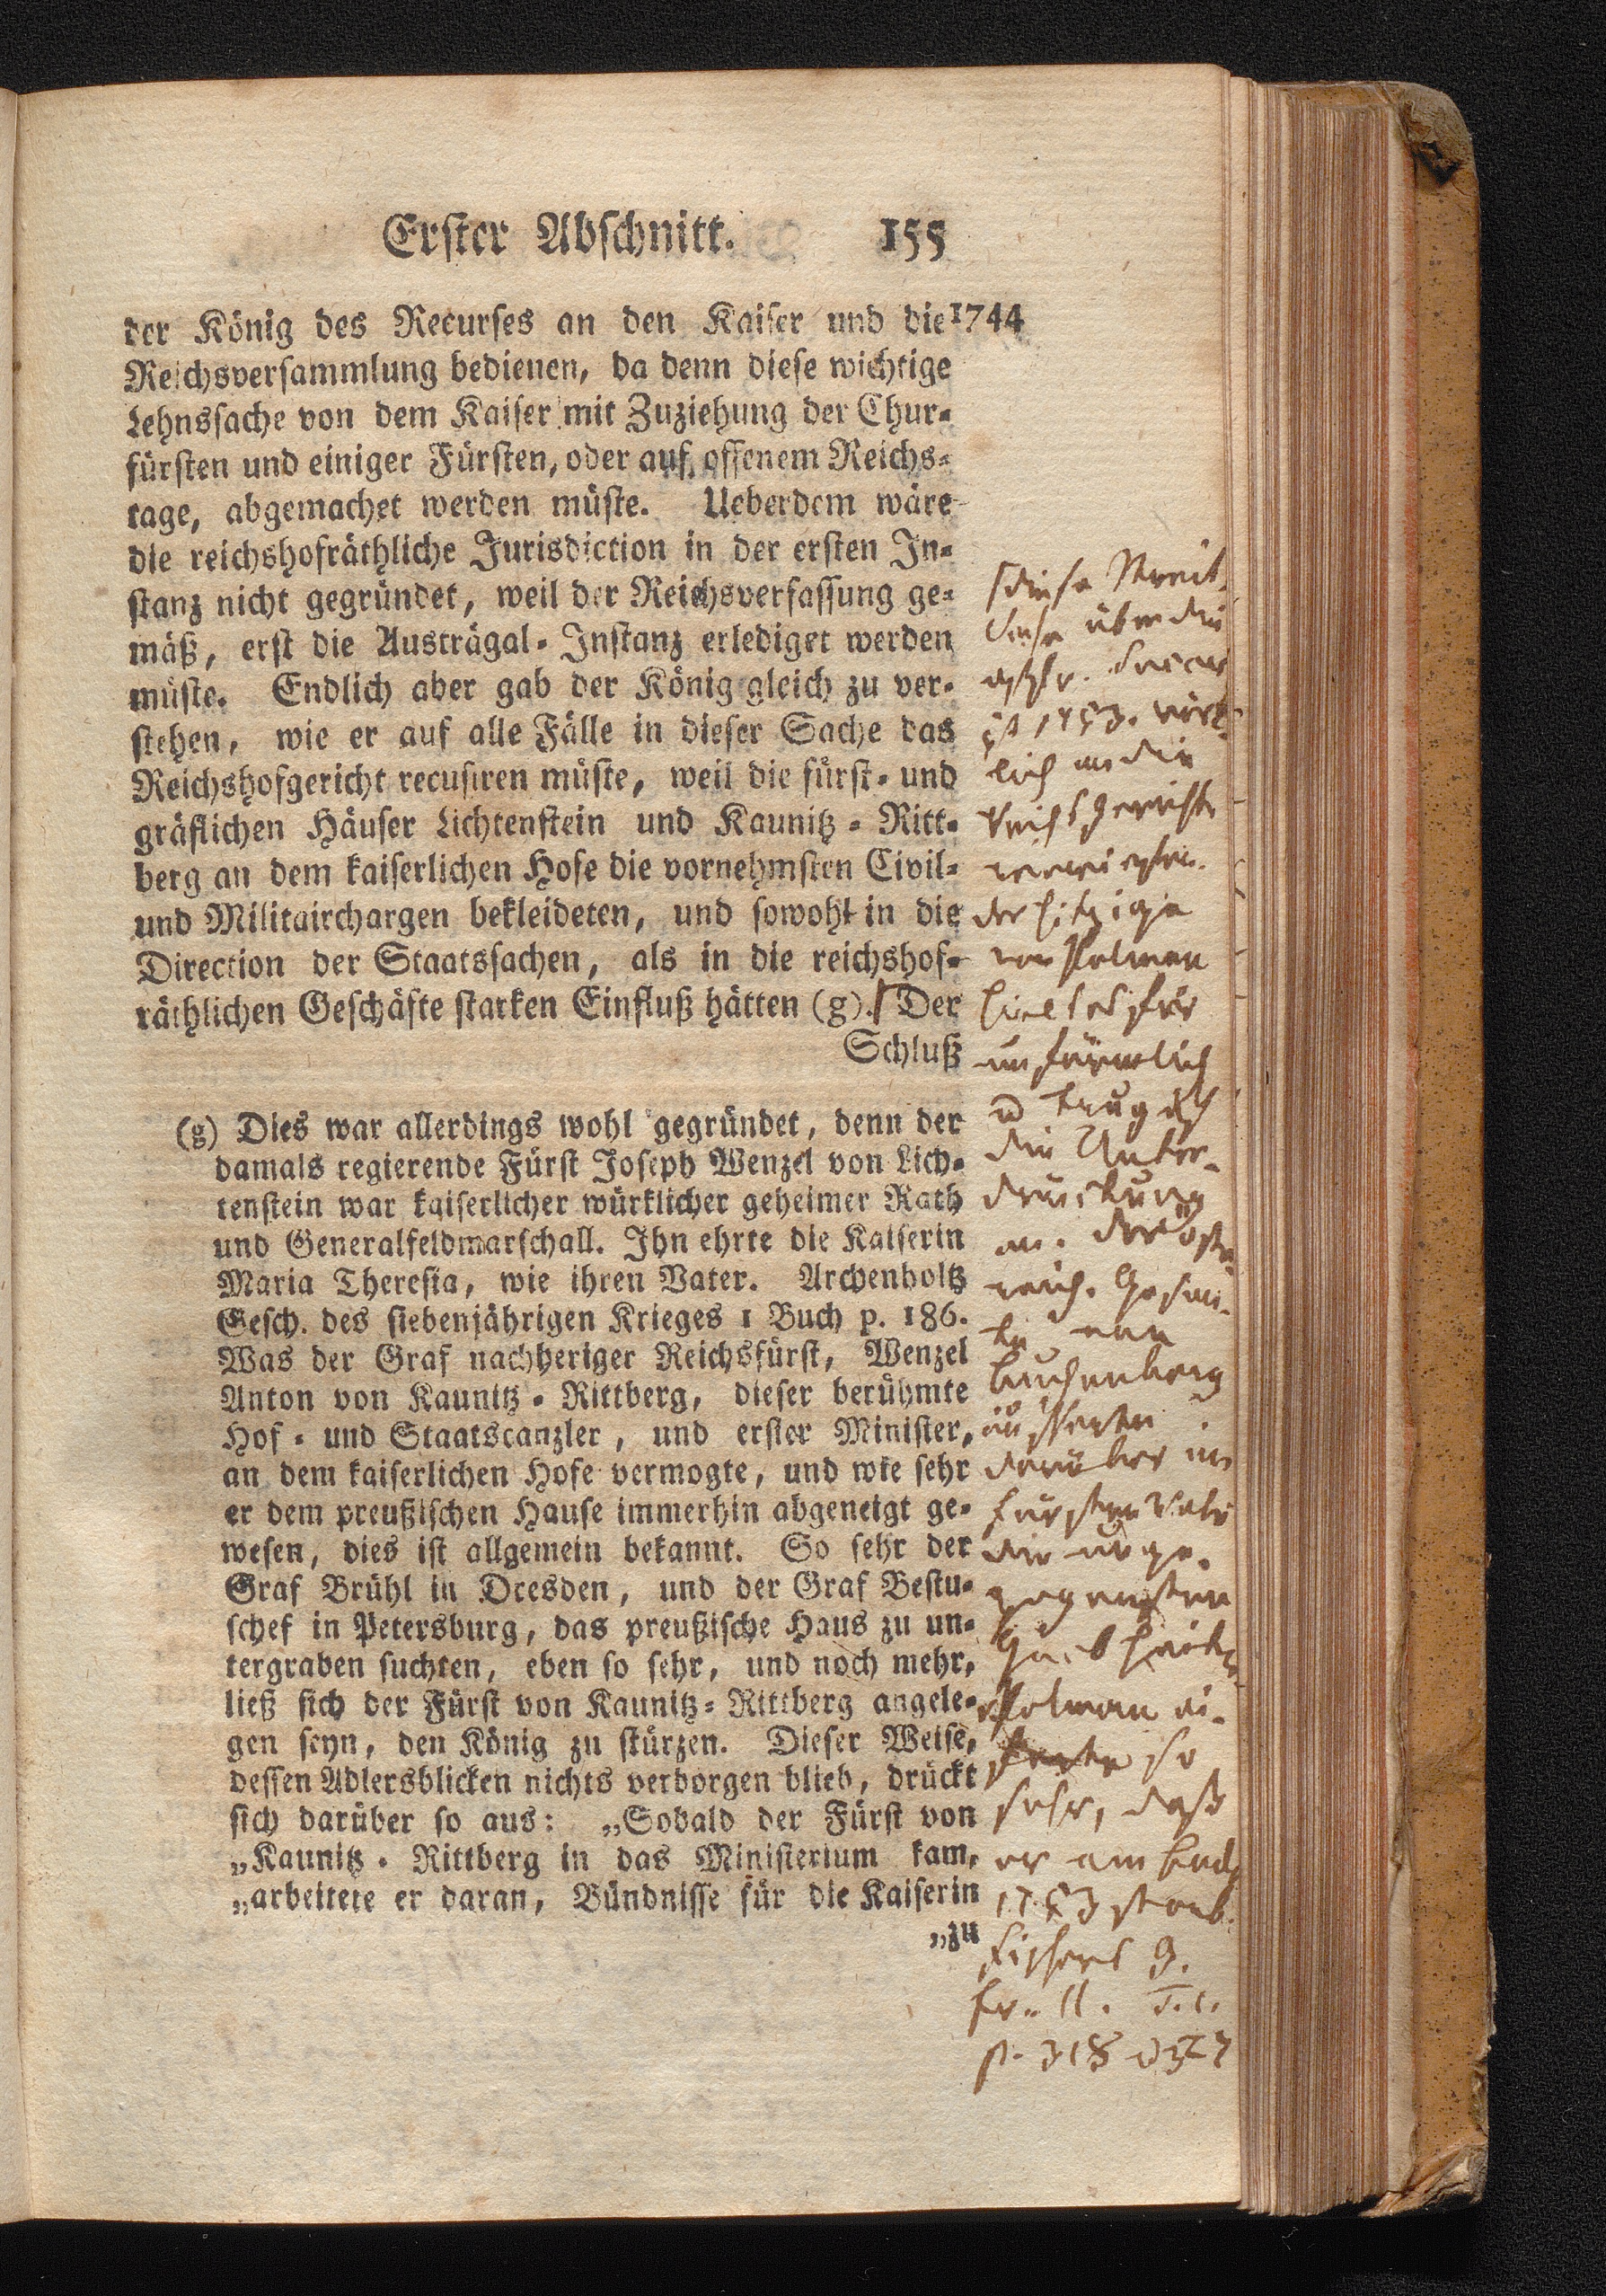 Erster Abschnitt. 155
der König des Recurses an den Kaiser und die 1744
Reichsversammlung bedienen, da denn diese wichtige
Lehnssache von dem Kaiser mit Zuziehung der Chur-
fürsten und einiger Fürsten, oder auf offenem Reichs-
tage, abgemachet werden müste. Ueberdem wäre
die reichshofräthliche Jurisdiction in der ersten In-
stanz nicht gegründet, weil der Reichsverfassung ge-
mäß, erst die Austrägal-Instanz erlediget werden
müste. Endlich aber gab der König gleich zu ver-
stehen, wie er auf alle Fälle in dieser Sache das
Reichshofgericht recusiren müste, weil die fürst- und
gräflichen Häuser Lichtenstein und Kaunitz-Ritt-
berg an dem kaiserlichen Hofe die vornehmsten Civil-
und Militairchargen bekleideten, und sowohl in die
Direction der Staatssachen, als in die reichshof-
räthlichen Geschäfte starken Einfluß hätten (g). Der
Schluß
(g) Dies war allerdings wohl gegründet, denn der
damals regierende Fürst Joseph Wenzel von Lich-
tenstein war kaiserlicher würklicher geheimer Rath
und Generalfeldmarschall. Ihn ehrte die Kaiserin
Maria Theresia, wie ihren Vater. Archenholtz
Gesch. des siebenjährigen Krieges 1 Buch p. 186.
Was der Graf nachheriger Reichsfürst, Wenzel
Anton von Kaunitz-Rittberg, dieser berühmte
Hof- und Staatscanzler, und erster Minister,
an dem kaiserlichen Hofe vermogte, und wie sehr
er dem preußischen Hause immerhin abgeneigt ge-
wesen, dies ist allgemein bekannt. So sehr der
Graf Brühl in Dresden, und der Graf Bestu-
schef in Petersburg, das preußische Haus zu un-
tergraben suchten, eben so sehr, und noch mehr,
ließ sich der Fürst von Kaunitz-Rittberg angele-
gen seyn, den König zu stürzen. Dieser Weise,
dessen Adlersblicken nichts verborgen blieb, drückt
sich darüber so aus: „Sobald der Fürst von
„Kaunitz-Rittberg in das Ministerium kam,
„arbeitete er daran, Bündnisse für die Kaiserin
„zu
diese Streit-
Sache über die
ist 1753.
lich an die
Reichsgerichte
der hitzige
von Polman
hielt es für
unförmlich
u trug auf
die Unter-
druckung
an. der öste
reich. Gesan-
te von
Buchenberg
äusserte
darüber im
Fürsten Rath
die
Polman ei-
ferte so
sehr, daß
er am Ende
1753 starb.
Fischers G.
Fr. II. T. 1.
p. 318 u 327